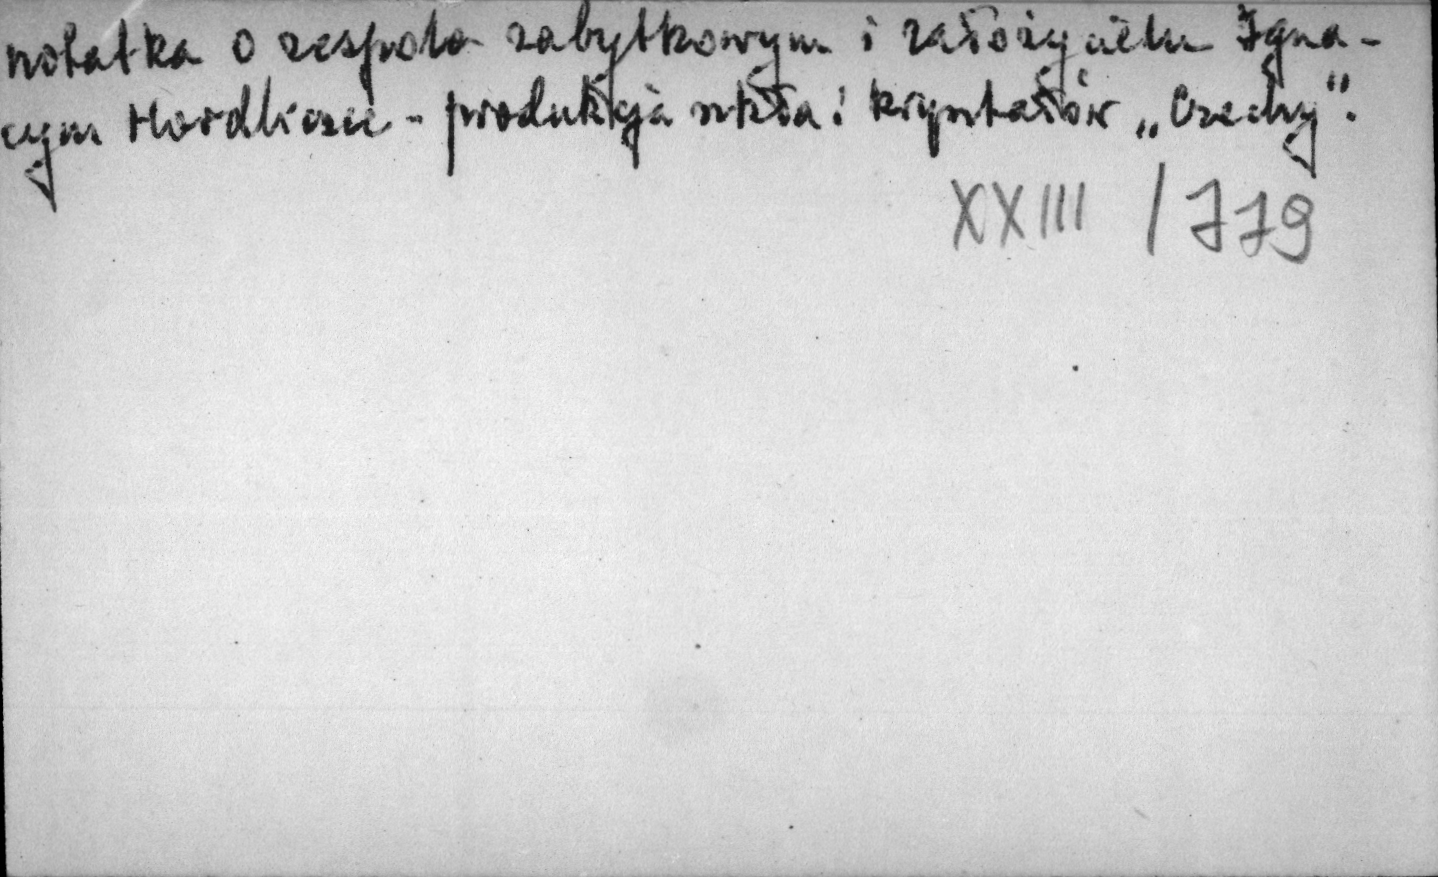 notatka o zespole zabytkowym i założycielu Igna-
cym Hordliczce - produkcja szkła i kryształów „Czechy".
XXIII / 779